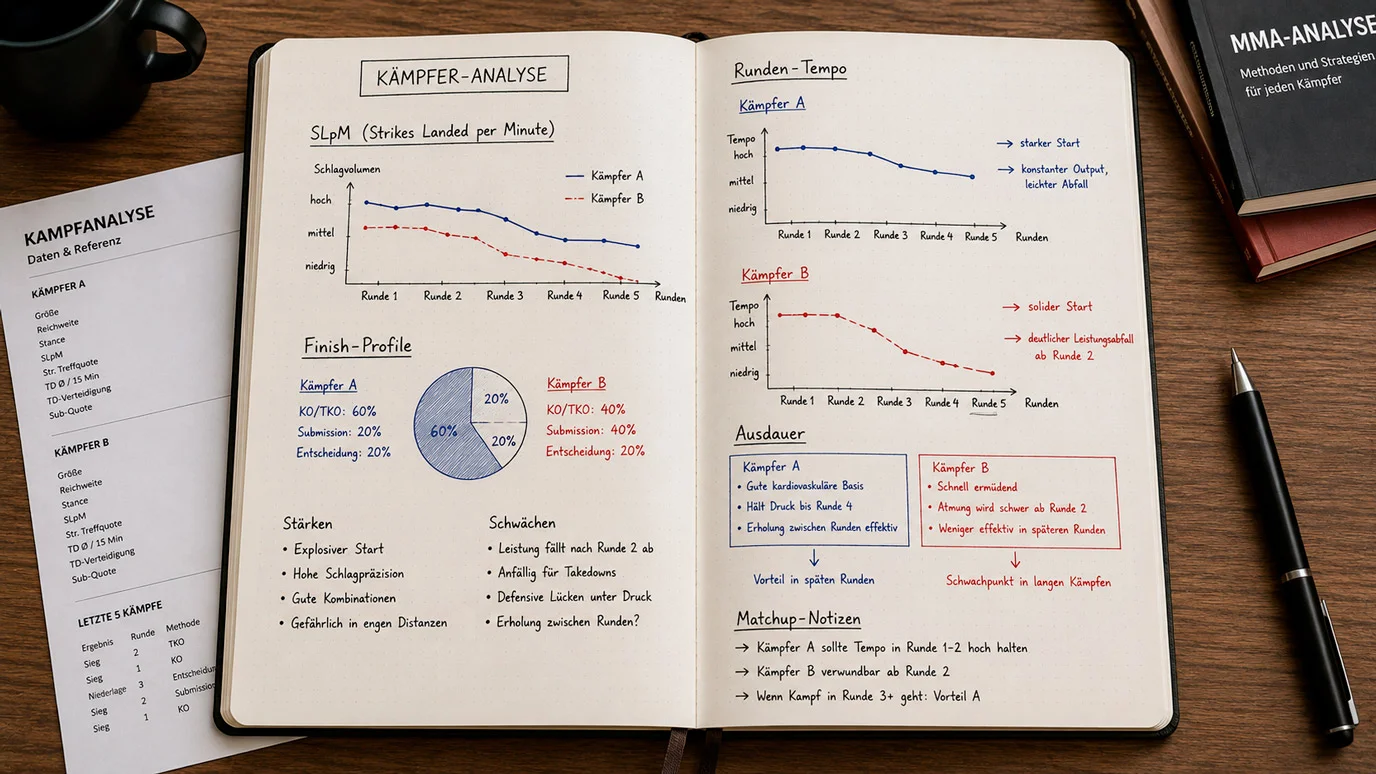 KÄMPFER-ANALYSE
SLpM (Strikes Landed per Minute)
Schlagvolumen
hoch
mittel
niedrig
Kämpfer A
Kämpfer B
Runde 1 Runde 2 Runde 3 Runde 4 Runde 5 Runden
Finish-Profile
Kämpfer A
KO/TKO: 60%
Submission: 20%
Entscheidung: 20%
60%
20%
20%
Kämpfer B
KO/TKO: 40%
Submission: 40%
Entscheidung: 20%
Stärken
• Explosiver Start
• Hohe Schlagpräzision
• Gute Kombinationen
• Gefährlich in engen Distanzen
Schwächen
• Leistung fällt nach Runde 2 ab
• Anfällig für Takedowns
• Defensive Lücken unter Druck
• Erholung zwischen Runden?
Runden-Tempo
Kämpfer A
Tempo
hoch
mittel
niedrig
Runde 1 Runde 2 Runde 3 Runde 4 Runde 5 Runden
→ starker Start
→ konstanter Output,
leichter Abfall
Kämpfer B
Tempo
hoch
mittel
niedrig
Runde 1 Runde 2 Runde 3 Runde 4 Runde 5 Runden
→ solider Start
→ deutlicher Leistungsabfall
ab Runde 2
Ausdauer
Kämpfer A
• Gute kardiovaskuläre Basis
• Hält Druck bis Runde 4
• Erholung zwischen Runden effektiv
Vorteil in späten Runden
Kämpfer B
• Schnell ermüdend
• Atmung wird schwer ab Runde 2
• Weniger effektiv in späteren Runden
Schwachpunkt in langen Kämpfen
Matchup-Notizen
→ Kämpfer A sollte Tempo in Runde 1-2 hoch halten
→ Kämpfer B verwundbar ab Runde 2
→ Wenn Kampf in Runde 3+ geht: Vorteil A
KAMPFANALYSE
Daten & Referenz
KÄMPFER A
Größe
Reichweite
Stance
SLpM
Str. Treffquote
TD Ø / 15 Min
TD-Verteidigung
Sub-Quote
KÄMPFER B
Größe
Reichweite
Stance
SLpM
Str. Treffquote
TD Ø / 15 Min
TD-Verteidigung
Sub-Quote
LETZTE 5 KÄMPFE
Ergebnis Runde Methode
Sieg 2 TKO
Sieg 1 KO
Niederlage 3 Entscheidun
Sieg 2 Submission
Sieg 1 KO
MMA-ANALYSE
Methoden und Strategien
für jeden Kämpfer